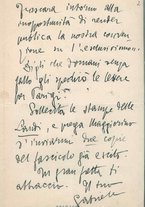 intorno alla
inopportunità di render
publica la nostra conver
sione su l'esclusivismo.
Digli che domani senza
fallo gli spedirò le lettere
per Parigi.
Sollecita le stampe delle
Laudi, e prega Maggiorino
d'inviarmi due copie
del fascicolo già escito.
Un gran fatto ti
abbraccio. Il tuo
Gabriele